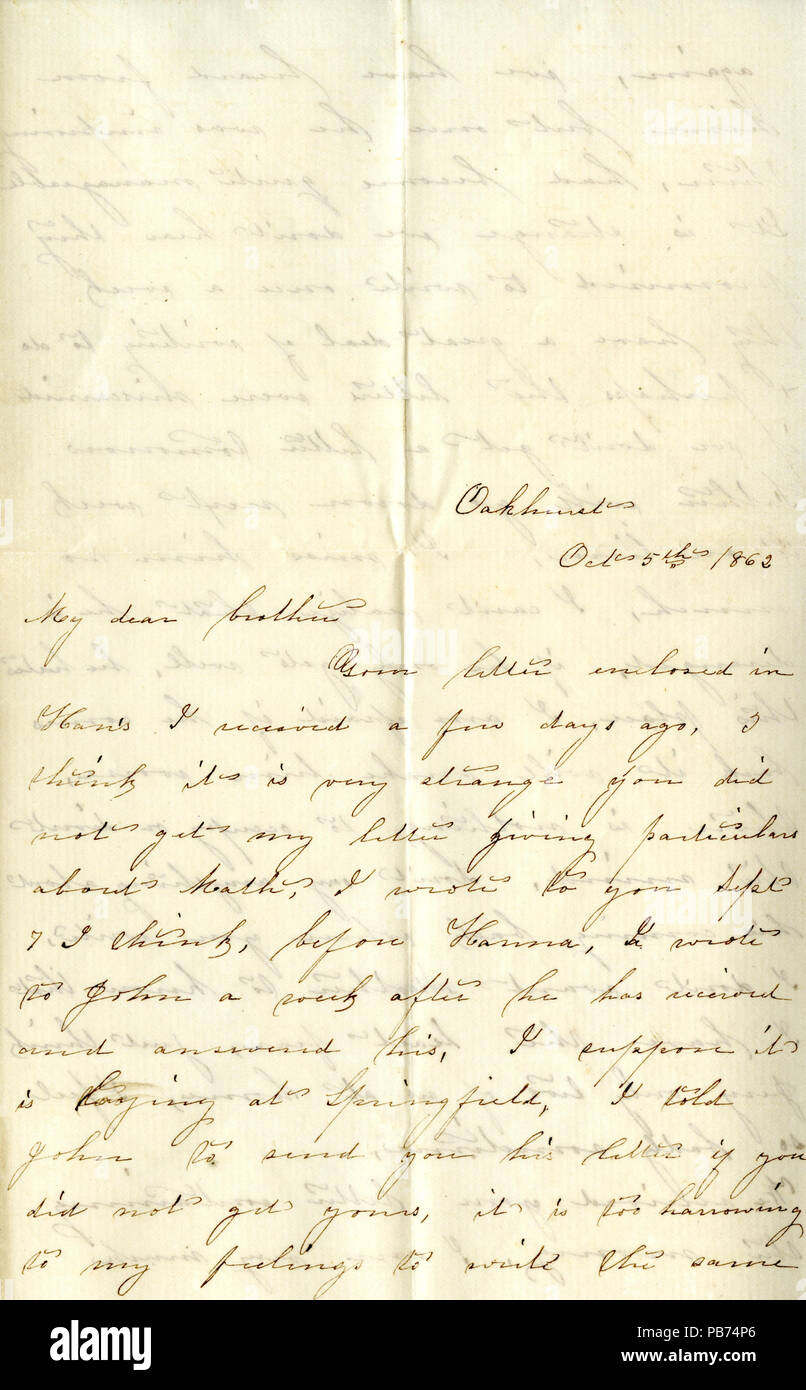 Oakhurst
Oct 5th 1862
My dear brother
Your letter enclosed in
Han's I received a few days ago, I
think it is very strange you did
not get my letter giving particulars
about Math, I wrote to you Sept
7 I think, before Hanna, I wrote
to John a week after he has received
and answered his, I suppose it
is laying at Springfield, I told
John to send you his letter if you
did not get yours, it is too harrowing
to my feelings to write the same
alamy
Image ID: PB74P6
www.alamy.com